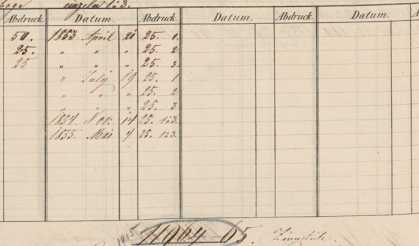 Abdruck. Datum. Abdruck. Datum. Abdruck. Datum.
50. 1853 April 21 25. 1.
25. " " " 25. 2
25 " " " 25. 3
" July 19 25. 1
" " " 25. 2
" " " 25. 3
1854 Nov. 14 25. 123.
1855. Mai 7 25. 123.
11964-65.